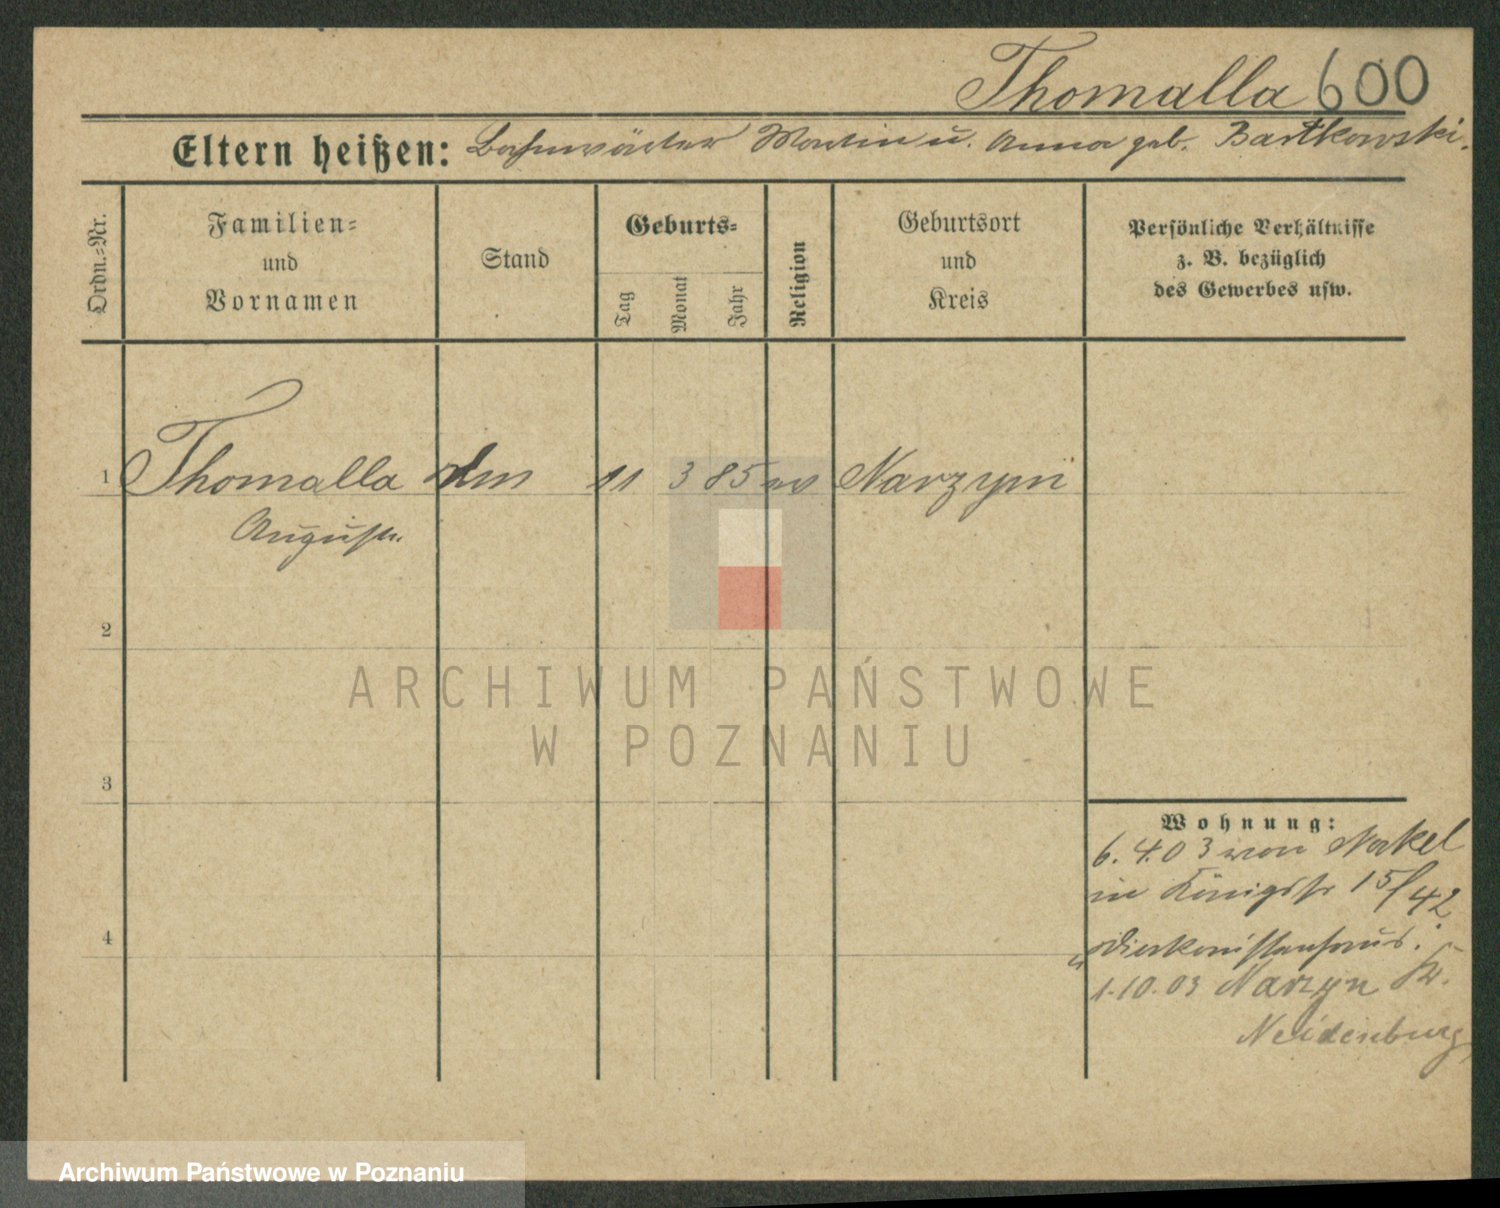 Thomalla 600
Eltern heißen: Bahnwärter Martin u. Anna geb. Bartkowski.
Ordn.-Nr.
Familien- und Vornamen
Stand
Geburts-
Tag
Monat
Jahr
Religion
Geburtsort und Kreis
Persönliche Verhältnisse
z. B. bezüglich
des Gewerbes usw.
1 Thomalla 11 3 85 ev Narzym
August.
2
3
4
Wohnung:
6. 4. 03 von Nakel
in Königstr 15/42
"Diakonissenhaus."
1.10.03 Narzyn Kr.
Neidenburg
ARCHIWUM PAŃSTWOWE
W POZNANIU
Archiwum Państwowe w Poznaniu